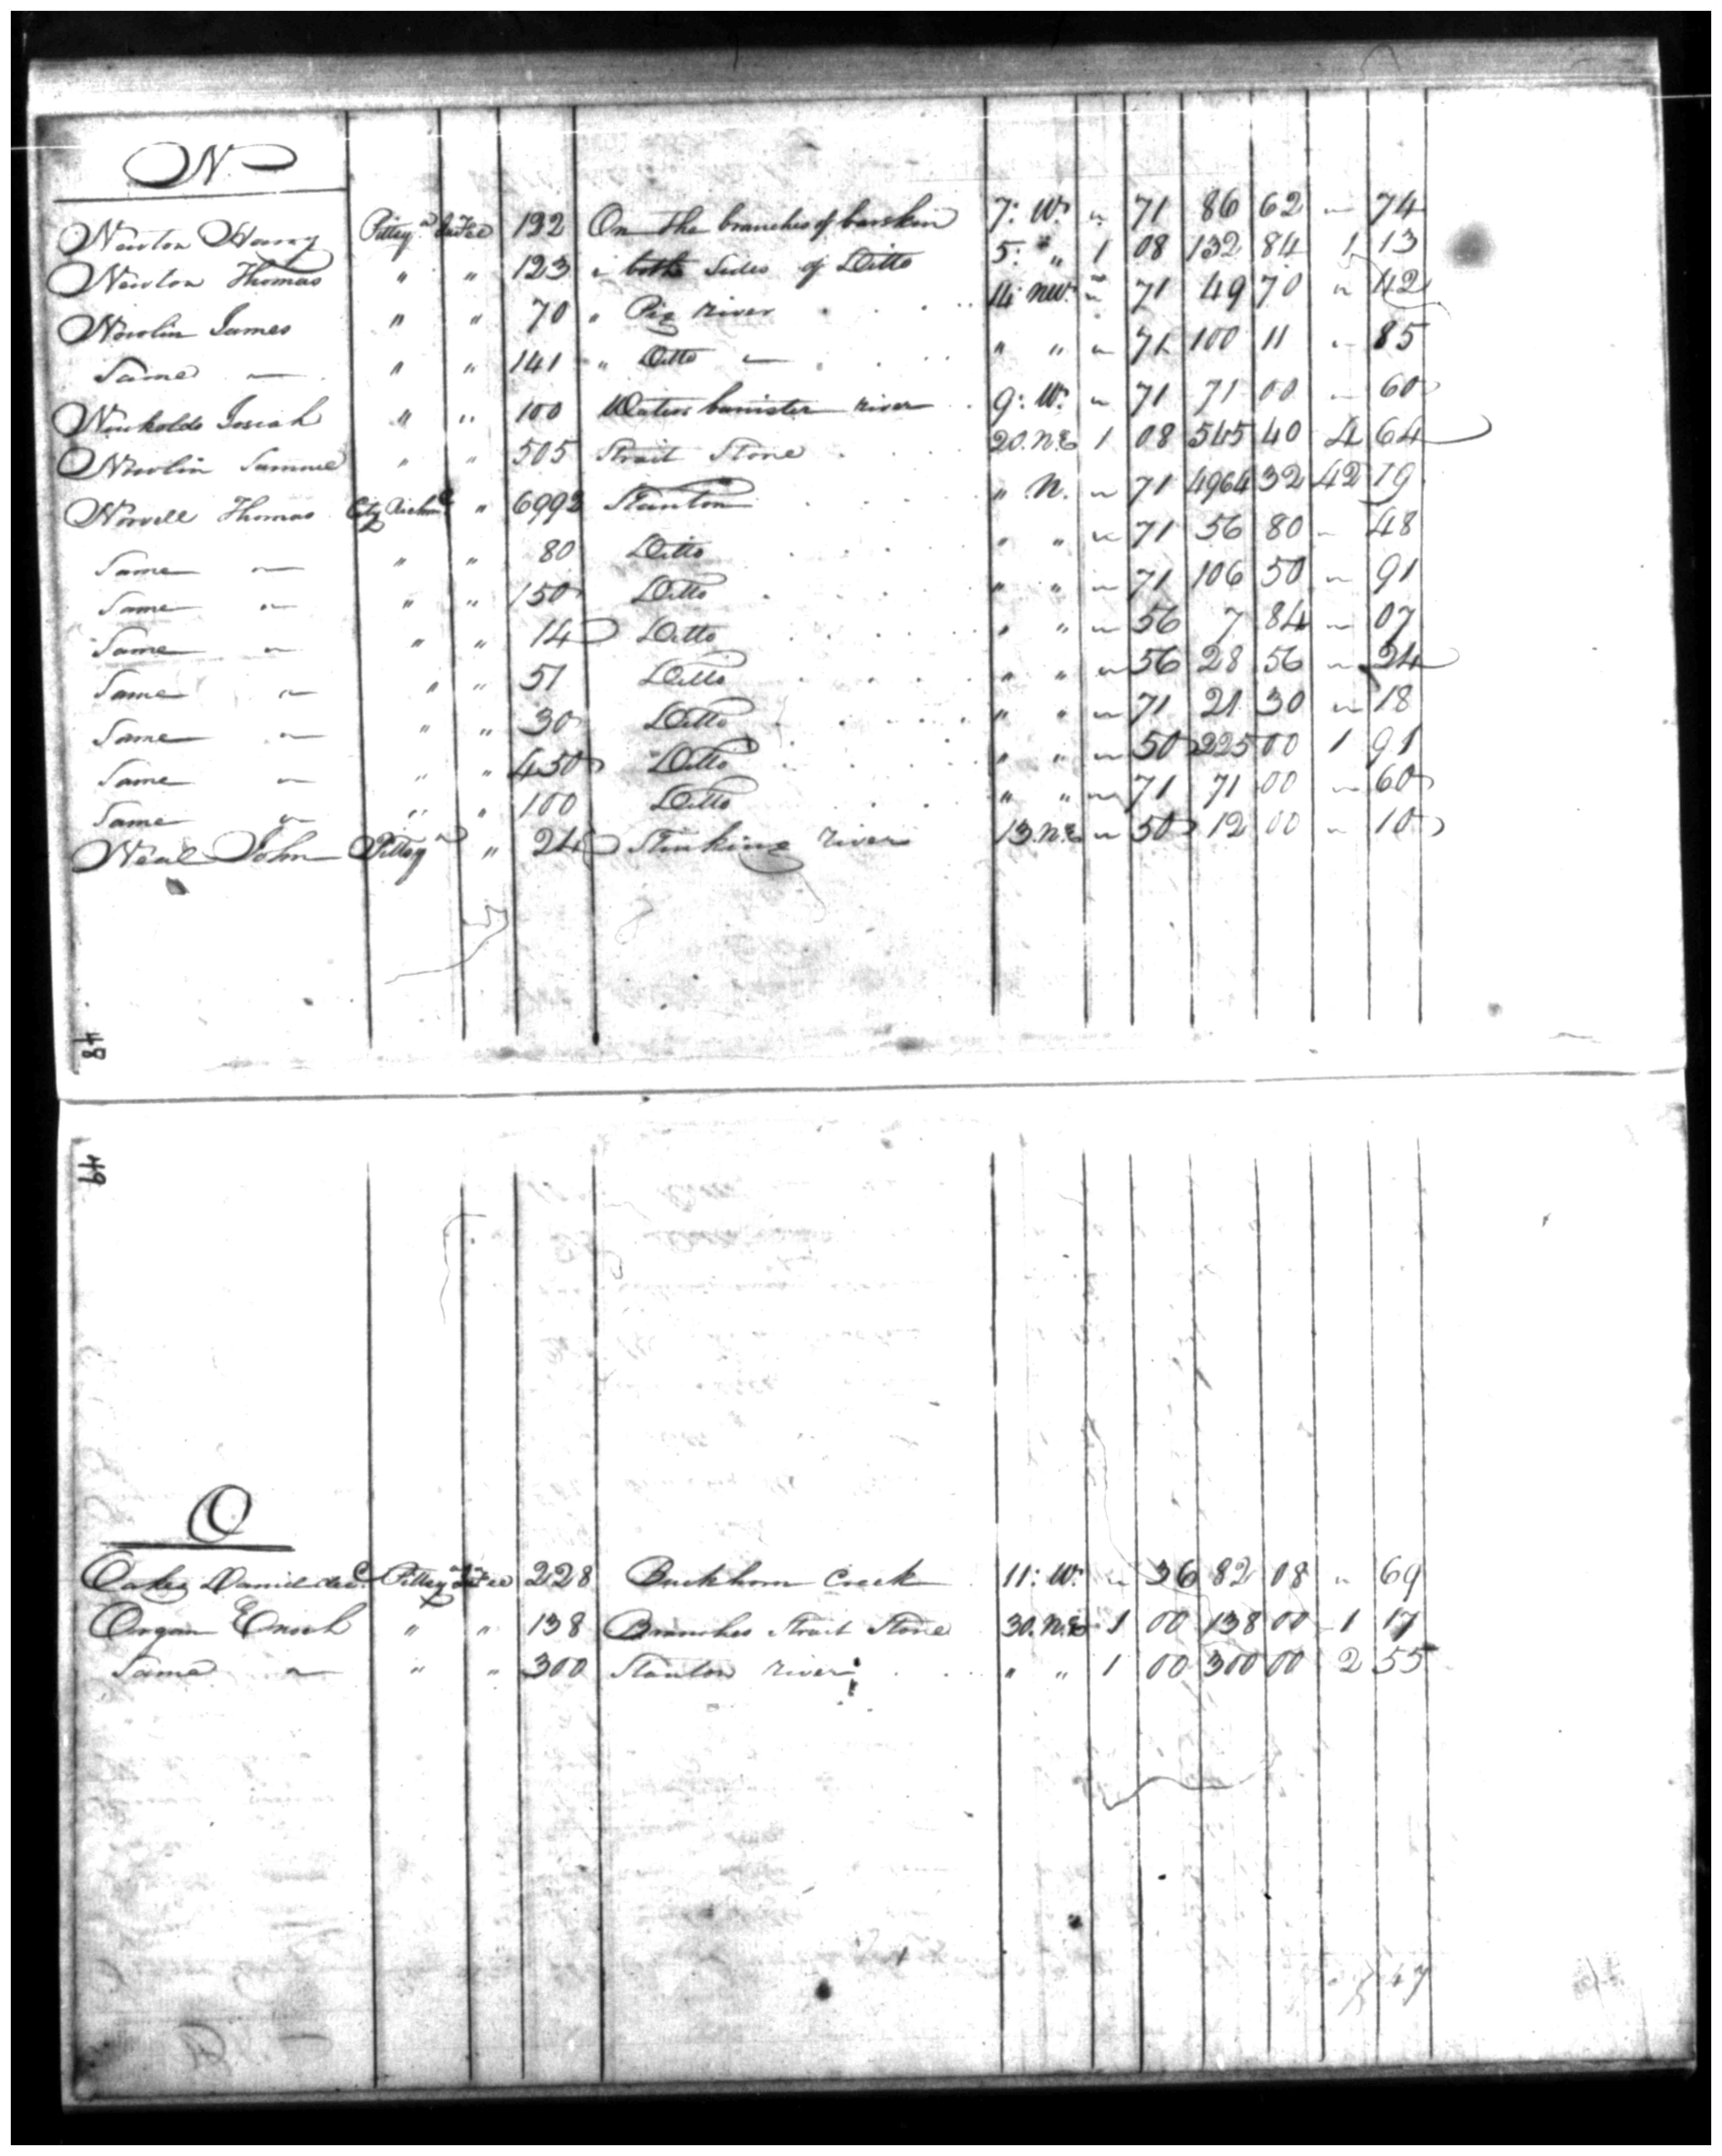 N
Newton Henry Pittsya. In Fee 122 On the branches of barskin 7: W. " 71 86 62 " 74
Newton Thomas " " 123 " both Sides of Ditto 5: " 1 08 132 84 1 13
Nowlin James " " 70 " Pig river 14 NW. " 71 49 70 " 42
Same " " " 141 " Ditto " " " " 71 100 11 " 85
Nuckolds Josiah " " 100 Waters banister river 9: W. " 71 71 00 " 60
Nowlin Samuel " " 505 Strait Stone 20. N.E 1 08 545 40 4 64
Norvell Thomas City Richmd " 6992 Stanton " N. " 71 4964 32 42 19
Same " " " 80 Ditto " " " 71 56 80 " 48
Same " " " 150 Ditto " " " 71 106 50 " 91
Same " " " 14 Ditto " " " 56 7 84 " 07
Same " " " 51 Ditto " " " 56 28 56 " 24
Same " " " 30 Ditto " " " 71 21 30 " 18
Same " " " 450 Ditto " " " 50 225 00 1 91
Same " " " 100 Ditto " " " 71 71 00 " 60
Neal John Pittsya " 24 Stinking river 13. N.E " 50 12 00 " 10
48
49
O
Oakes Daniel decd. Pittsya In Fee 228 Buckhorn Creek 11: W. " 36 82 08 " 69
Organ Enoch " " 138 Branches Strait Stone 30. N.E 1 00 138 00 1 17
Same " " " 300 Stanton river " " 1 00 300 00 2 55